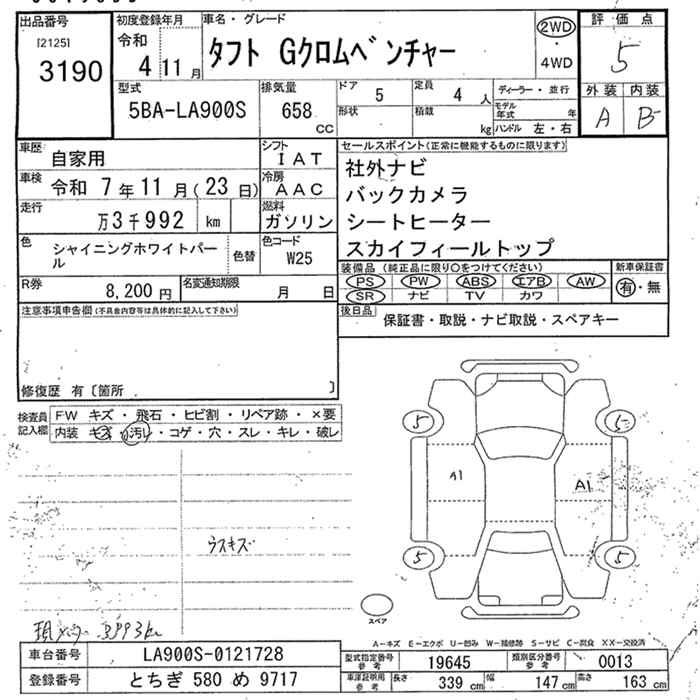 出品番号
[2125]
3190
初度登録年月
令和
4 11月
車名・グレード
タフト Gクロムベンチャー
2WD
・
4WD
評価点
5
外装 内装
A B-
型式
5BA-LA900S
排気量
658
cc
ドア 5
定員 4 人
形状
積載 kg
ディーラー・並行
モデル年式 年
ハンドル 左・右
車歴 自家用
シフト IAT
車検 令和 7年11月(23日)
冷房 AAC
走行 万3千992 km
燃料 ガソリン
色 シャイニングホワイトパール
色替
色コード W25
R券 8,200円
名変通知期限 月 日
セールスポイント(正常に機能するものに限ります)
社外ナビ
バックカメラ
シートヒーター
スカイフィールトップ
装備品(純正品に限り○をつけてください)
PS PW ABS エアB AW
SR ナビ TV カワ
新車保証書
有・無
後日品 保証書・取説・ナビ取説・スペアキー
注意事項申告欄(不具合内容等は具体的に記入して下さい)
修復歴 有〔箇所 〕
検査員記入欄
FW キズ・飛石・ヒビ割・リペア跡・×要
内装 キズ・汚れ・コゲ・穴・スレ・キレ・破レ
ラスキズ
現メーター 3993km
5 5
A1 A1
5 5
スペア
A-キズ E-エクボ U-凹み W-補修跡 S-サビ C-腐食 XX-交換済
車台番号 LA900S-0121728
登録番号 とちぎ 580 め 9717
型式指定番号 参考 19645
類別区分番号 参考 0013
車庫証明用 参考 長さ 339cm 幅 147cm 高さ 163cm